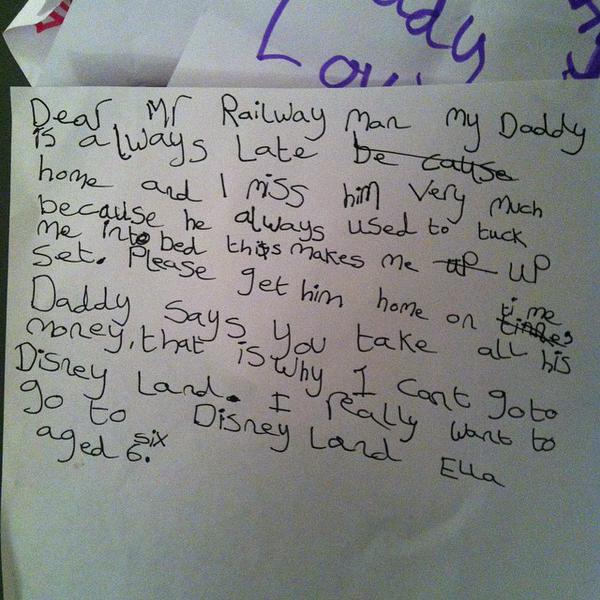 ddy
Lov
Dear Mr Railway man my Daddy
is always Late be cause
home and I miss him very much
because he always used to tuck
me into bed this makes me up UP
Set. Please get him home on time
Daddy says you take all his
money, that is why I cant goto
Disney Land. I really want to
go to Disney Land Ella
aged six 6.